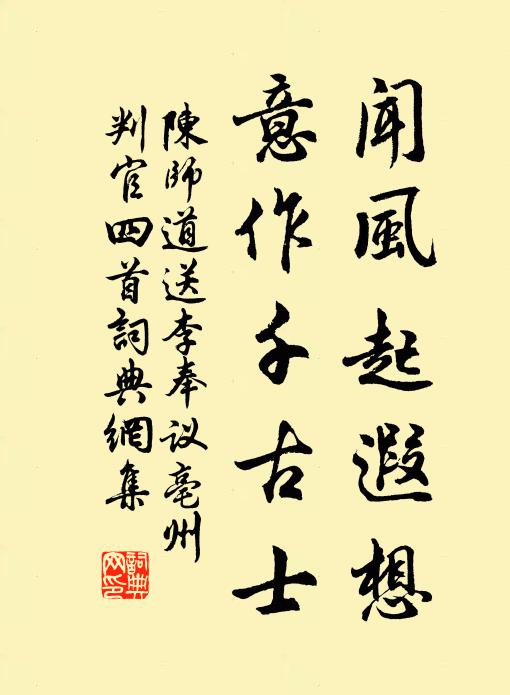 聞風起遐想
意作千古士
陳師道送李奉议亳州
判官四首詞典網集
詞典
网印